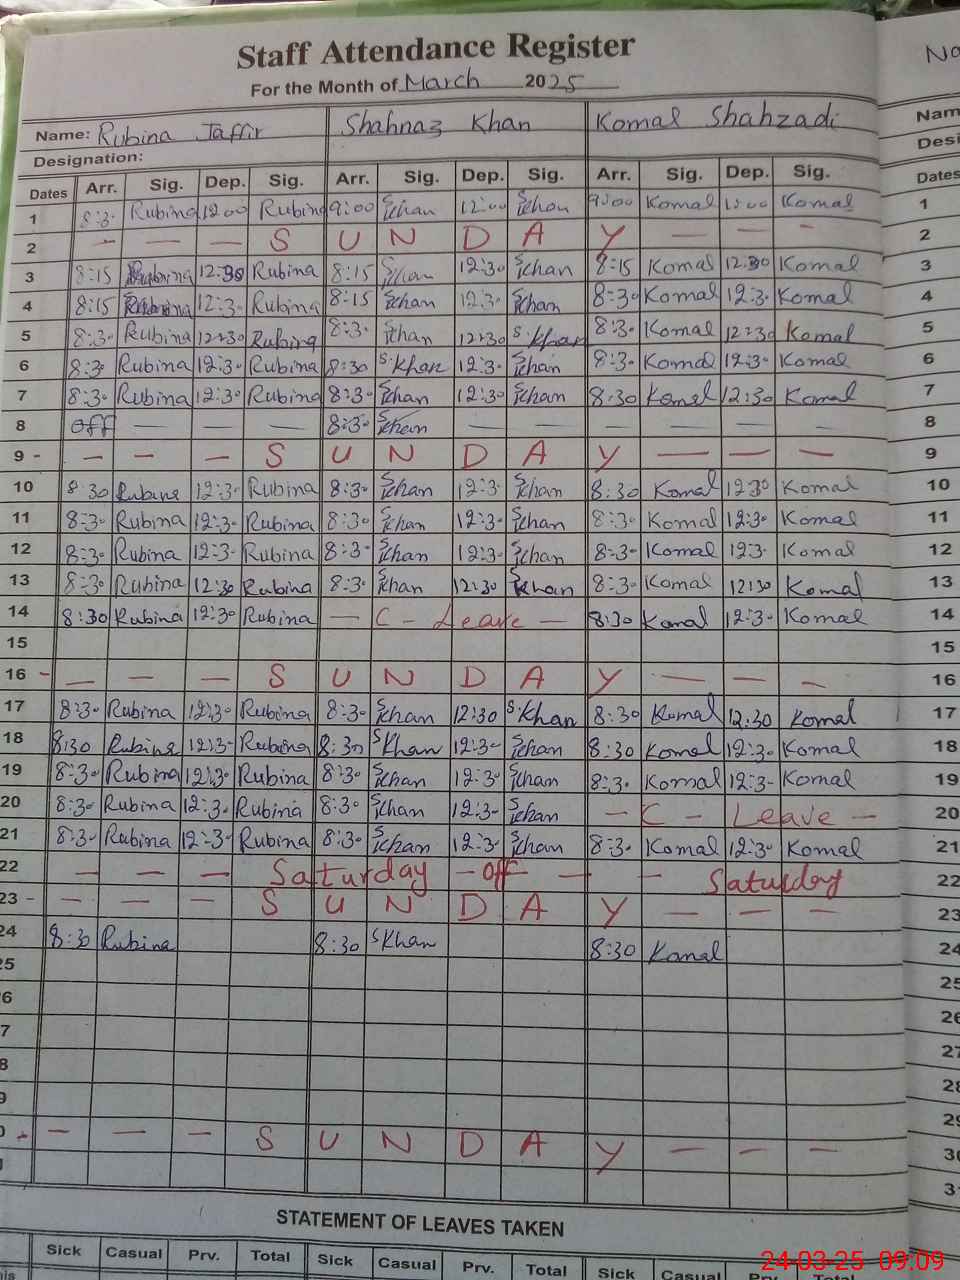 Staff Attendance Register
For the Month of March 2025
No
Name: Rubina Jaffir Shahnaz Khan Komal Shahzadi Nam
Designation: Desi
Dates Arr. Sig. Dep. Sig. Arr. Sig. Dep. Sig. Arr. Sig. Dep. Sig. Dates
1 8:3- Rubina 12:00 Rubina 9:00 S.khan 12:00 S.khan 9:00 Komal Komal 1
2 - - - S U N D A Y - - - 2
3 8:15 Rubina 12:30 Rubina 8:15 S.khan 12:30 S.khan 8:15 Komal 12:30 Komal 3
4 8:15 Rubina 12:3- Rubina 8:15 S.khan 12:3- S.khan 8:3- Komal 12:3- Komal 4
5 8:3- Rubina 12:30 Rubina 8:3- S.khan 12:30 S.khan 8:3- Komal 12:30 Komal 5
6 8:3- Rubina 12:3- Rubina 8:30 S.khan 12:3- S.khan 8:3- Komal 12:3- Komal 6
7 8:3- Rubina 12:3- Rubina 8:3- S.khan 12:30 S.khan 8:30 Komal 12:30 Komal 7
8 off - - - 8:3- S.khan - - - - - - 8
9 - - - - S U N D A Y - - - 9
10 8:30 Rubina 12:3- Rubina 8:3- S.khan 12:3- S.khan 8:30 Komal 12:30 Komal 10
11 8:3- Rubina 12:3- Rubina 8:3- S.khan 12:3- S.khan 8:3- Komal 12:3- Komal 11
12 8:3- Rubina 12:3- Rubina 8:3- S.khan 12:3- S.khan 8:3- Komal 12:3- Komal 12
13 8:3- Rubina 12:30 Rubina 8:3- S.khan 12:30 S.khan 8:3- Komal 12:30 Komal 13
14 8:30 Rubina 12:30 Rubina - C - Leave - 8:30 Komal 12:3- Komal 14
15 15
16 - - - - S U N D A Y - - - 16
17 8:3- Rubina 12:3- Rubina 8:3- S.khan 12:30 S.khan 8:30 Komal 12:30 Komal 17
18 8:30 Rubina 12:3- Rubina 8:30 S.khan 12:3- S.khan 8:30 Komal 12:3- Komal 18
19 8:3- Rubina 12:3- Rubina 8:3- S.khan 12:3- S.khan 8:3- Komal 12:3- Komal 19
20 8:3- Rubina 12:3- Rubina 8:3- S.khan 12:3- S.khan - C - Leave - 20
21 8:3- Rubina 12:3- Rubina 8:3- S.khan 12:3- S.khan 8:3- Komal 12:3- Komal 21
22 - - - Saturday - Off - - - Saturday 22
23 - - - - S U N D A Y - - - 23
24 8:30 Rubina 8:30 S.khan 8:30 Komal 24
25 25
6 26
7 27
8 28
9 29
0 - - - - S U N D A Y - - - 30
31
STATEMENT OF LEAVES TAKEN
Sick Casual Prv. Total Sick Casual Prv. Total Sick Casual Prv. Total
24-03-25 09:09